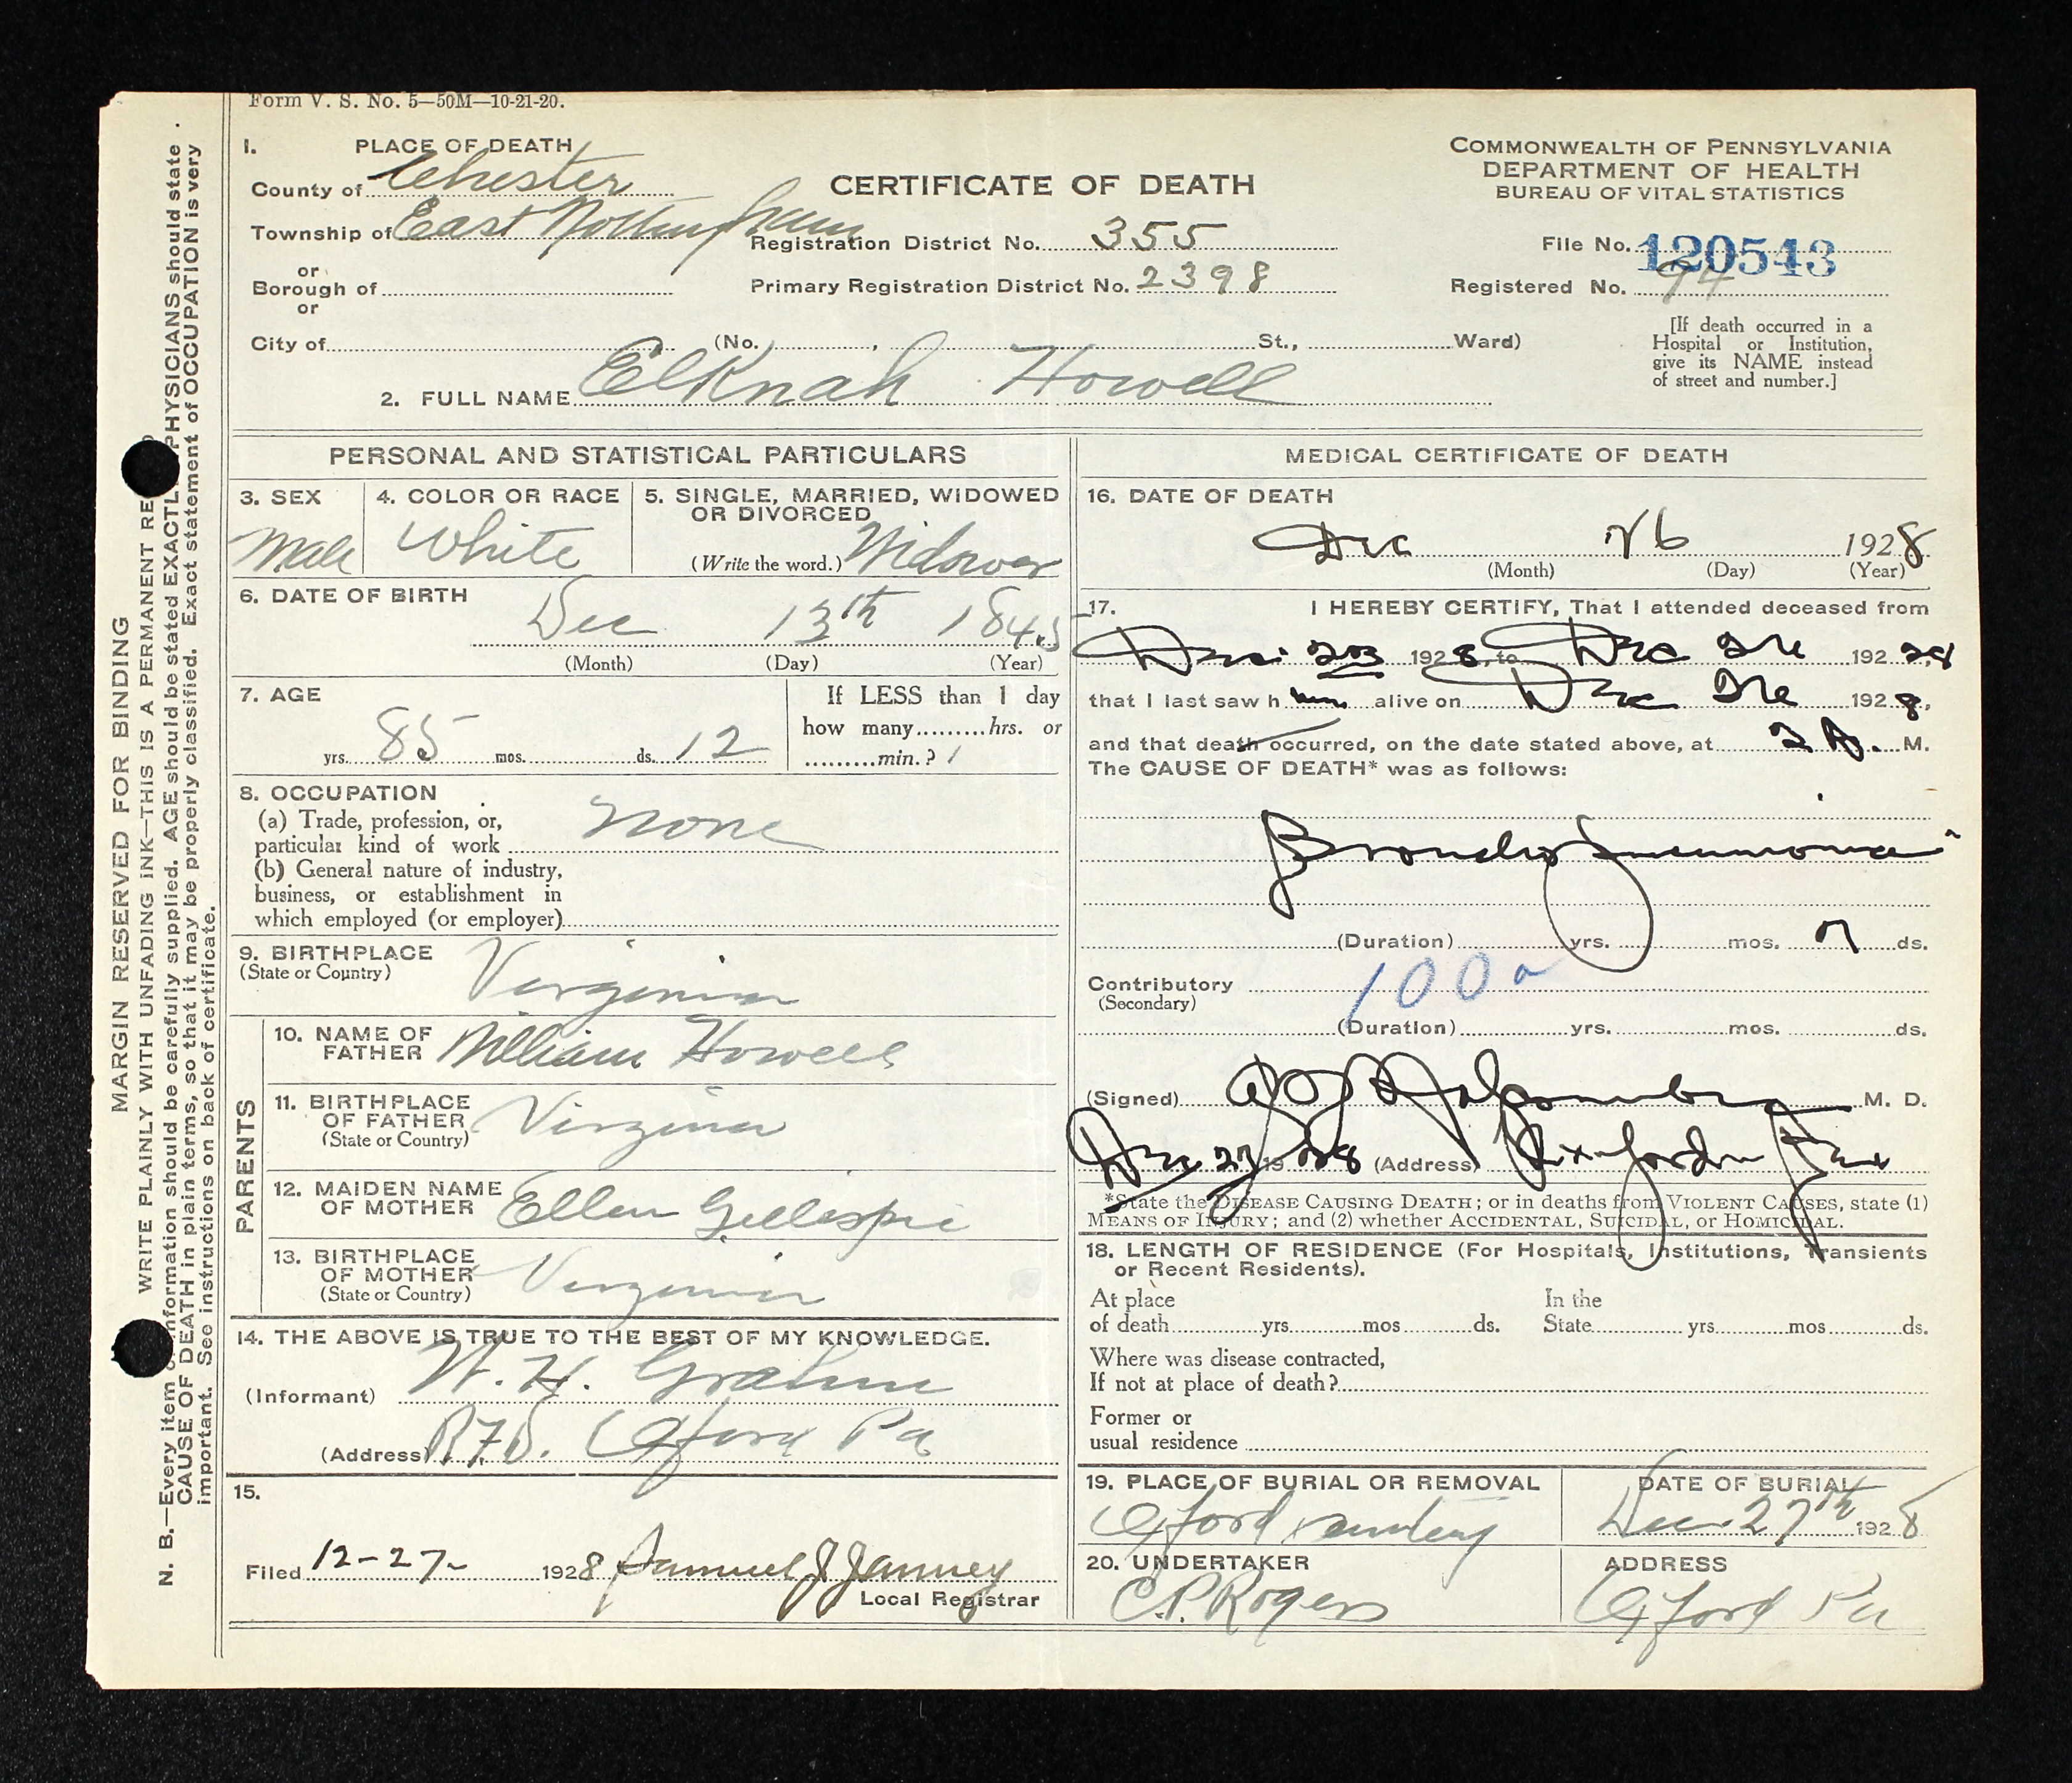 Form V. S. No. 5—50M—10-21-20.
1. PLACE OF DEATH
County of Chester
Township of East Nottingham
or
Borough of
or
City of (No. , St., Ward)
CERTIFICATE OF DEATH
Registration District No. 355
Primary Registration District No. 2398
COMMONWEALTH OF PENNSYLVANIA
DEPARTMENT OF HEALTH
BUREAU OF VITAL STATISTICS
File No. 120543
Registered No. 94
[If death occurred in a
Hospital or Institution,
give its NAME instead
of street and number.]
2. FULL NAME Elknah Howell
PERSONAL AND STATISTICAL PARTICULARS
3. SEX
Male
4. COLOR OR RACE
White
5. SINGLE, MARRIED, WIDOWED
OR DIVORCED
(Write the word.) Widower
6. DATE OF BIRTH
Dec 13th 1845
(Month) (Day) (Year)
7. AGE
85 yrs. mos. 12 ds.
If LESS than 1 day
how many hrs. or
min.?
8. OCCUPATION
(a) Trade, profession, or,
particular kind of work none
(b) General nature of industry,
business, or establishment in
which employed (or employer)
9. BIRTHPLACE
(State or Country) Virginia
PARENTS
10. NAME OF
FATHER William Howell
11. BIRTHPLACE
OF FATHER
(State or Country) Virginia
12. MAIDEN NAME
OF MOTHER Ellen Gillespie
13. BIRTHPLACE
OF MOTHER
(State or Country) Virginia
14. THE ABOVE IS TRUE TO THE BEST OF MY KNOWLEDGE.
(Informant) W. H. Graham
(Address) R.F.D. Oxford Pa
15.
Filed 12-27- 1928 Samuel J Janney
Local Registrar
MEDICAL CERTIFICATE OF DEATH
16. DATE OF DEATH
Dec 26 1928
(Month) (Day) (Year)
17. I HEREBY CERTIFY, That I attended deceased from
Dec 1928, to Dec 26 192 28
that I last saw him alive on Dec 26 1928,
and that death occurred, on the date stated above, at 2 A. M.
The CAUSE OF DEATH* was as follows:
Broncho pneumonia
(Duration) yrs. mos. 7 ds.
Contributory 100a
(Secondary)
(Duration) yrs. mos. ds.
(Signed) M. D.
Dec 27 1928 (Address)
*State the DISEASE CAUSING DEATH; or in deaths from VIOLENT CAUSES, state (1)
MEANS OF INJURY; and (2) whether ACCIDENTAL, SUICIDAL, or HOMICIDAL.
18. LENGTH OF RESIDENCE (For Hospitals, Institutions, Transients
or Recent Residents).
At place In the
of death yrs. mos. ds. State yrs. mos. ds.
Where was disease contracted,
If not at place of death?
Former or
usual residence
19. PLACE OF BURIAL OR REMOVAL
Oxford Cemetery
DATE OF BURIAL
Dec 27th 1928
20. UNDERTAKER
C.P. Rogers
ADDRESS
Oxford Pa
MARGIN RESERVED FOR BINDING
WRITE PLAINLY WITH UNFADING INK—THIS IS A PERMANENT RE
N. B.—Every item of information should be carefully supplied. AGE should be stated EXACTL PHYSICIANS should state
CAUSE OF DEATH in plain terms, so that it may be properly classified. Exact statement of OCCUPATION is very
important. See instructions on back of certificate.